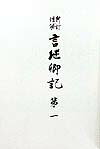 新訂
増補
言継卿記
第一